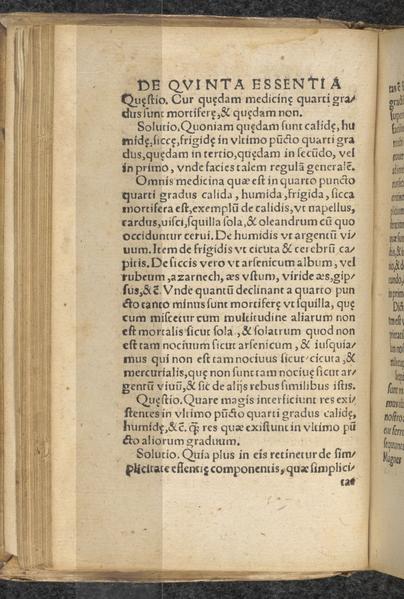 DE QVINTA ESSENTIA
Quęstio. Cur quędam medicinę quarti gra/
dus sunt mortiferę, & quędam non.
Solutio. Quoniam quędam sunt calidę, hu
midę, siccę, frigidę in vltimo pūcto quarti gra
dus, quędam in tertio, quędam in secūdo, vel
in primo, vnde facies talem regulā generalē.
Omnis medicina quæ est in quarto puncto
quarti gradus calida, humida, frigida, sicca
mortifera est, exemplū de calidis, vt napellus,
cardus, visci, squilla sola, & oleandrum cū quo
occiduntur cerui. De humidis vt argentū vi/
uum. Item de frigidis vt cicuta & cerebrū ca/
pitis. De siccis vero vt arsenicum album, vel
rubeum, azarnech, æs vstum, viride æs, gip/
sus, &c̄. Vnde quantū declinant a quarto pun
cto tanto minus sunt mortiferę vt squilla, quę
cum miscetur cum multitudine aliarum non
est mortalis sicut sola, & solatrum quod non
est tam nociuum sicut arsenicum, & iusquia/
mus qui non est tam nociuus sicut cicuta, &
mercurialis, quę non sunt tam nociuę sicut ar/
gentū viuū, & sic de alijs rebus similibus istis.
Quęstio. Quare magis interficiunt res exi/
stentes in vltimo pūcto quarti gradus calidę,
humidę, &c̄. q̄ȝ res quæ existunt in vltimo pū
cto aliorum graduum.
Solutio. Quia plus in eis retinetur de sim/
plicitate essentię componentis, quæ simplici/
tas